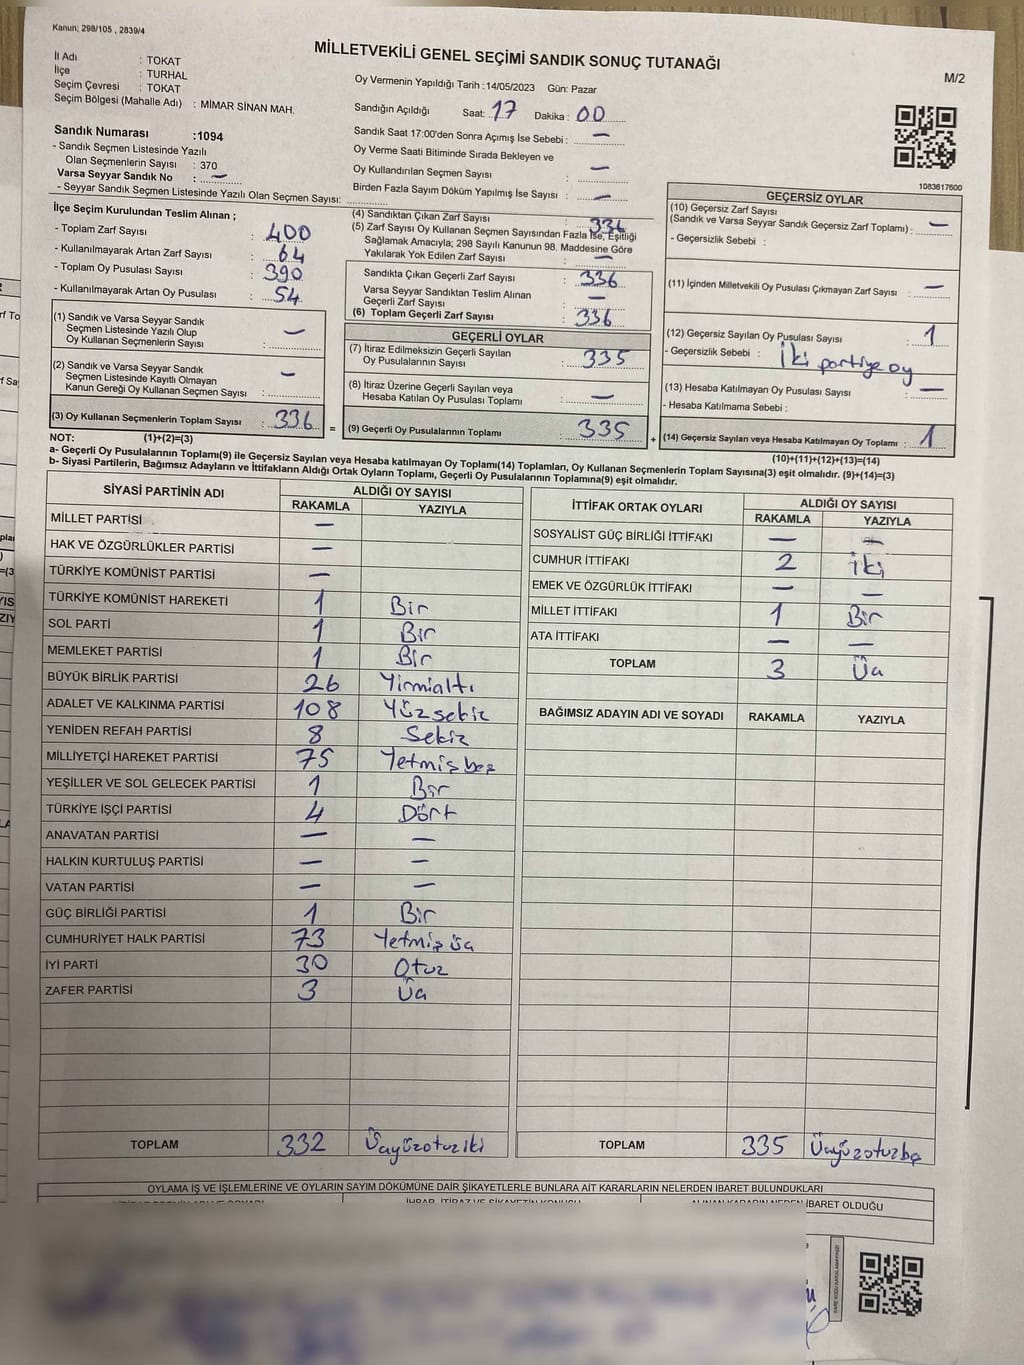 Kanun; 298/105 , 2839/4
MİLLETVEKİLİ GENEL SEÇİMİ SANDIK SONUÇ TUTANAĞI
M/2
İl Adı : TOKAT
İlçe : TURHAL
Seçim Çevresi : TOKAT
Seçim Bölgesi (Mahalle Adı) : MİMAR SİNAN MAH.
Oy Vermenin Yapıldığı Tarih :14/05/2023 Gün: Pazar
Sandığın Açıldığı Saat: 17 Dakika : 00
Sandık Saat 17:00'den Sonra Açımış İse Sebebi : —
Oy Verme Saati Bitiminde Sırada Bekleyen ve
Oy Kullandırılan Seçmen Sayısı : —
Birden Fazla Sayım Döküm Yapılmış İse Sayısı : —
Sandık Numarası :1094
- Sandık Seçmen Listesinde Yazılı
Olan Seçmenlerin Sayısı : 370
Varsa Seyyar Sandık No : —
- Seyyar Sandık Seçmen Listesinde Yazılı Olan Seçmen Sayısı:
1083617600
İlçe Seçim Kurulundan Teslim Alınan ;
- Toplam Zarf Sayısı : 400
- Kullanılmayarak Artan Zarf Sayısı : 64
- Toplam Oy Pusulası Sayısı : 390
- Kullanılmayarak Artan Oy Pusulası : 54
(1) Sandık ve Varsa Seyyar Sandık
Seçmen Listesinde Yazılı Olup
Oy Kullanan Seçmenlerin Sayısı : —
(2) Sandık ve Varsa Seyyar Sandık
Seçmen Listesinde Kayıtlı Olmayan
Kanun Gereği Oy Kullanan Seçmen Sayısı : —
(3) Oy Kullanan Seçmenlerin Toplam Sayısı : 336 =
(4) Sandıktan Çıkan Zarf Sayısı : 336
(5) Zarf Sayısı Oy Kullanan Seçmen Sayısından Fazla İse, Eşitliği
Sağlamak Amacıyla; 298 Sayılı Kanunun 98. Maddesine Göre
Yakılarak Yok Edilen Zarf Sayısı : —
Sandıkta Çıkan Geçerli Zarf Sayısı : 336
Varsa Seyyar Sandıktan Teslim Alınan
Geçerli Zarf Sayısı : —
(6) Toplam Geçerli Zarf Sayısı : 336
GEÇERLİ OYLAR
(7) İtiraz Edilmeksizin Geçerli Sayılan
Oy Pusulalarının Sayısı : 335
(8) İtiraz Üzerine Geçerli Sayılan veya
Hesaba Katılan Oy Pusulası Toplamı : —
(9) Geçerli Oy Pusulalarının Toplamı : 335 +
GEÇERSİZ OYLAR
(10) Geçersiz Zarf Sayısı
(Sandık ve Varsa Seyyar Sandık Geçersiz Zarf Toplamı) : —
- Geçersizlik Sebebi :
(11) İçinden Milletvekili Oy Pusulası Çıkmayan Zarf Sayısı : —
(12) Geçersiz Sayılan Oy Pusulası Sayısı : 1
- Geçersizlik Sebebi : İki partiye oy
(13) Hesaba Katılmayan Oy Pusulası Sayısı : —
- Hesaba Katılmama Sebebi :
(14) Geçersiz Sayılan veya Hesaba Katılmayan Oy Toplamı : 1
NOT: (1)+(2)=(3) (10)+(11)+(12)+(13)=(14)
a- Geçerli Oy Pusulalarının Toplamı(9) ile Geçersiz Sayılan veya Hesaba katılmayan Oy Toplamı(14) Toplamları, Oy Kullanan Seçmenlerin Toplam Sayısına(3) eşit olmalıdır. (9)+(14)=(3)
b- Siyasi Partilerin, Bağımsız Adayların ve İttifakların Aldığı Ortak Oyların Toplamı, Geçerli Oy Pusulalarının Toplamına(9) eşit olmalıdır.
SİYASİ PARTİNİN ADI ALDIĞI OY SAYISI
RAKAMLA YAZIYLA
MİLLET PARTİSİ —
HAK VE ÖZGÜRLÜKLER PARTİSİ —
TÜRKİYE KOMÜNİST PARTİSİ —
TÜRKİYE KOMÜNİST HAREKETİ 1 Bir
SOL PARTİ 1 Bir
MEMLEKET PARTİSİ 1 Bir
BÜYÜK BİRLİK PARTİSİ 26 Yirmialtı
ADALET VE KALKINMA PARTİSİ 108 Yüzsekiz
YENİDEN REFAH PARTİSİ 8 Sekiz
MİLLİYETÇİ HAREKET PARTİSİ 75 Yetmişbeş
YEŞİLLER VE SOL GELECEK PARTİSİ 1 Bir
TÜRKİYE İŞÇİ PARTİSİ 4 Dört
ANAVATAN PARTİSİ — —
HALKIN KURTULUŞ PARTİSİ — —
VATAN PARTİSİ — —
GÜÇ BİRLİĞİ PARTİSİ 1 Bir
CUMHURİYET HALK PARTİSİ 73 Yetmişüç
İYİ PARTİ 30 Otuz
ZAFER PARTİSİ 3 Üç
TOPLAM 332 Üçyüzotuziki
İTTİFAK ORTAK OYLARI ALDIĞI OY SAYISI
RAKAMLA YAZIYLA
SOSYALİST GÜÇ BİRLİĞİ İTTİFAKI — —
CUMHUR İTTİFAKI 2 İki
EMEK VE ÖZGÜRLÜK İTTİFAKI — —
MİLLET İTTİFAKI 1 Bir
ATA İTTİFAKI — —
TOPLAM 3 Üç
BAĞIMSIZ ADAYIN ADI VE SOYADI RAKAMLA YAZIYLA
TOPLAM 335 Üçyüzotuzbeş
OYLAMA İŞ VE İŞLEMLERİNE VE OYLARIN SAYIM DÖKÜMÜNE DAİR ŞİKAYETLERLE BUNLARA AİT KARARLARIN NELERDEN İBARET BULUNDUKLARI
İHBAR, İTİRAZ VE ŞİKAYETİN KONUSU
ALINAN KARARIN NEDEN İBARET OLDUĞU